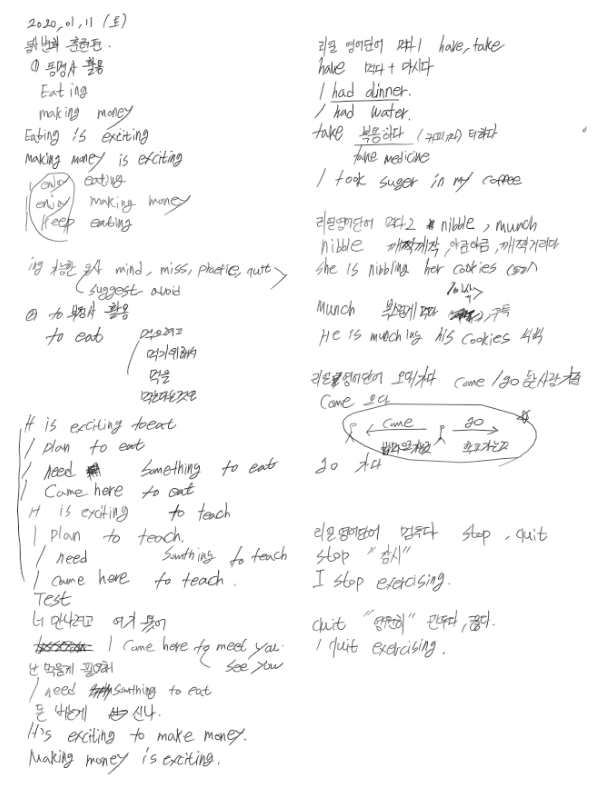 2020, 01, 11 (토)
훈련편.
① 동명사 활용
Eating
making money
Eating is exciting
Making money is exciting
enjoy eating
enjoy making money
keep eating
ing 가능한 동사 mind, miss, practic, quit
suggest avoid
② to 부정사 활용
to eat 먹으려고
먹기위해서
먹을
먹는다는것은
It is exciting to eat
I plan to eat
I need something to eat
I came here to eat
It is exciting to teach
I plan to teach.
I need somthing to teach
I came here to teach.
Test
너 만나려고 여기 왔어
I came here to meet you.
see you
난 먹을게 필요해
I need somthing to eat
돈 버는게 신나.
It's exciting to make money.
Making money is exciting.
리얼 영어단어 먹다1 have, take
have 먹다 + 마시다
I had dinner.
I had water.
take 복용하다 (커피 ) 타먹다
take medicine
I took suger in my coffee
리얼영어단어 먹다2 nibble, munch
nibble 깨작깨작, 야금야금, 깨작거리다
She is nibbling her cookies
munch 복스럽게 먹다
He is munching his cookies
리얼영어단어 오다/가다 come / go
Come 오다
come go
go 가다
리얼영어단어 멈추다 stop, quit
stop "잠시"
I stop exercising.
quit "영원히" 관두다, 끊다.
I quit exercising.